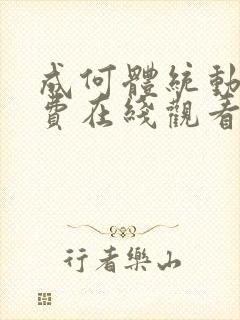 成何體統動
費在綫觀看
行者樂山